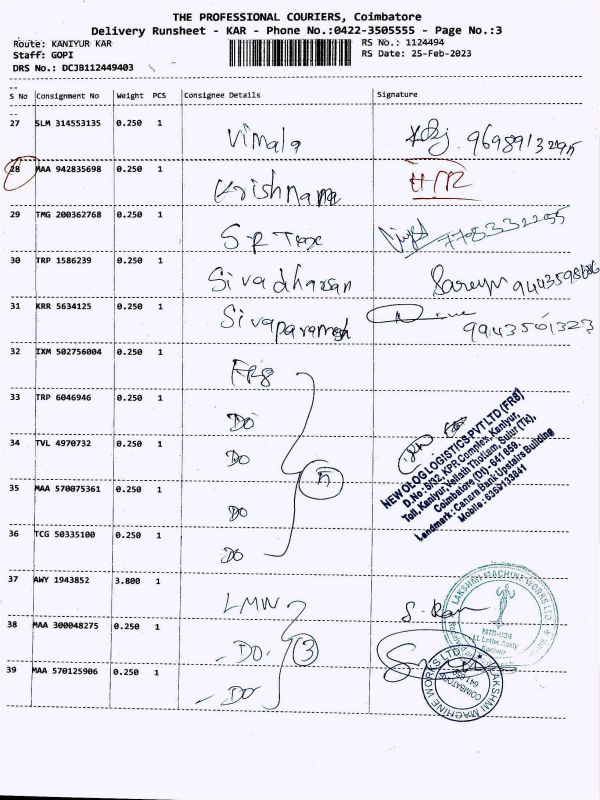 THE PROFESSIONAL COURIERS, Coimbatore
Delivery Runsheet - KAR - Phone No.:0422-3505555 - Page No.:3
Route: KANIYUR KAR RS No.: 1124494
Staff: GOPI RS Date: 25-Feb-2023
DRS No.: DCJB112449403
--
S No Consignment No Weight PCS Consignee Details Signature
--
27 SLM 314553135 0.250 1 Vimala
28 MAA 942835698 0.250 1 Krishnama
29 TMG 200362768 0.250 1 S P Tex 7708332255
30 TRP 1586239 0.250 1 Sivadharan
31 KRR 5634125 0.250 1 Sivaparamesh 9943501323
32 IXM 502756004 0.250 1 FR8
33 TRP 6046946 0.250 1 DO
34 TVL 4970732 0.250 1 DO
35 MAA 570075361 0.250 1 DO 5
36 TCG 50335100 0.250 1 DO
NEW OLOG LOGISTICS PVT LTD (FR8)
D.No : 8/32, KPR Complex, Kaniyur,
Toll, Kaniyur, Vellath Thottam, Sulur (Tk),
Coimbatore (Dt) - 641 659.
Landmark : Canara Bank Upstairs Building
Mobile : 6369133841
37 AWY 1943852 3.800 1 LMW
38 MAA 300048275 0.250 1 - DO - 3
39 MAA 570125906 0.250 1 - DO -
LAKSHMI MACHINE WORKS LTD
LAKSHMI MACHINE WORKS LTD.
COIMBATORE